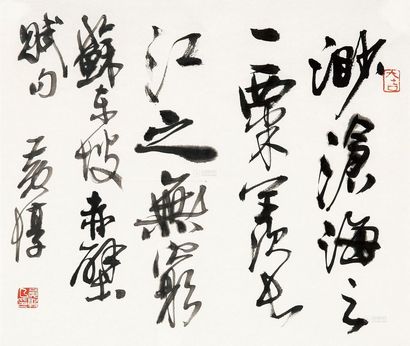 渺滄海之
一粟羨長
江之無窮
蘇東坡赤壁
賦句 黄惇